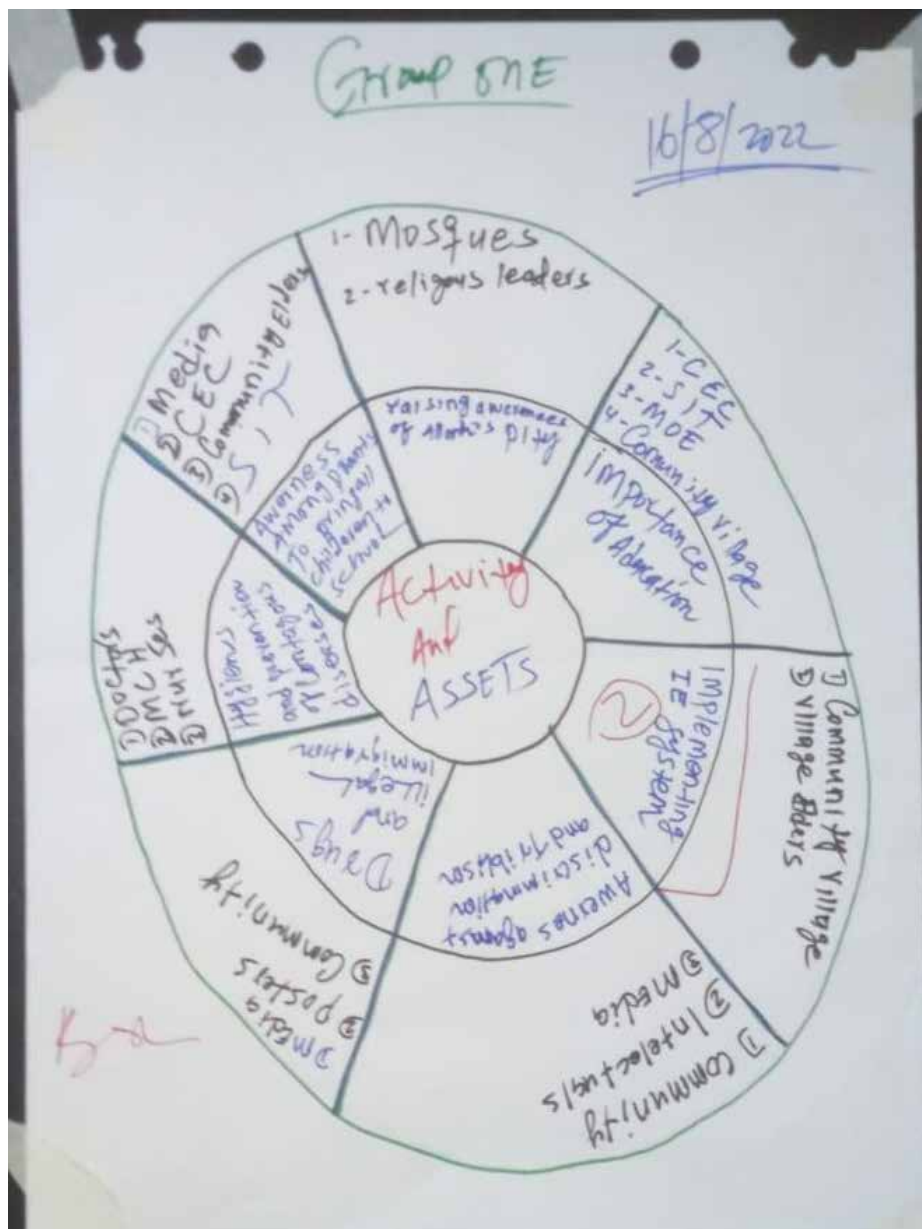 Group one
16/8/2022
1- Mosques
2- religous leaders
raising awarnees
of
1- CEC
2- SIT
3- MOE
4- Comunity village
Importance
of Adecation
① Community Village
② Village Elders
Implementing
IE system
②
① Community
② Intelectuals
③ Media
Awernes against
discrimination
and
① Media
② posters
③ Community
Drugs
and
illegal
immigration
① Doctors
② MCH
③ Nurses
Hygiens
and prevention
of contagious
diseases
① Media
② CEC
③ Community Elders
④ SIT
Awerness
among
To bring all
children to
school
Activity
And
ASSETS